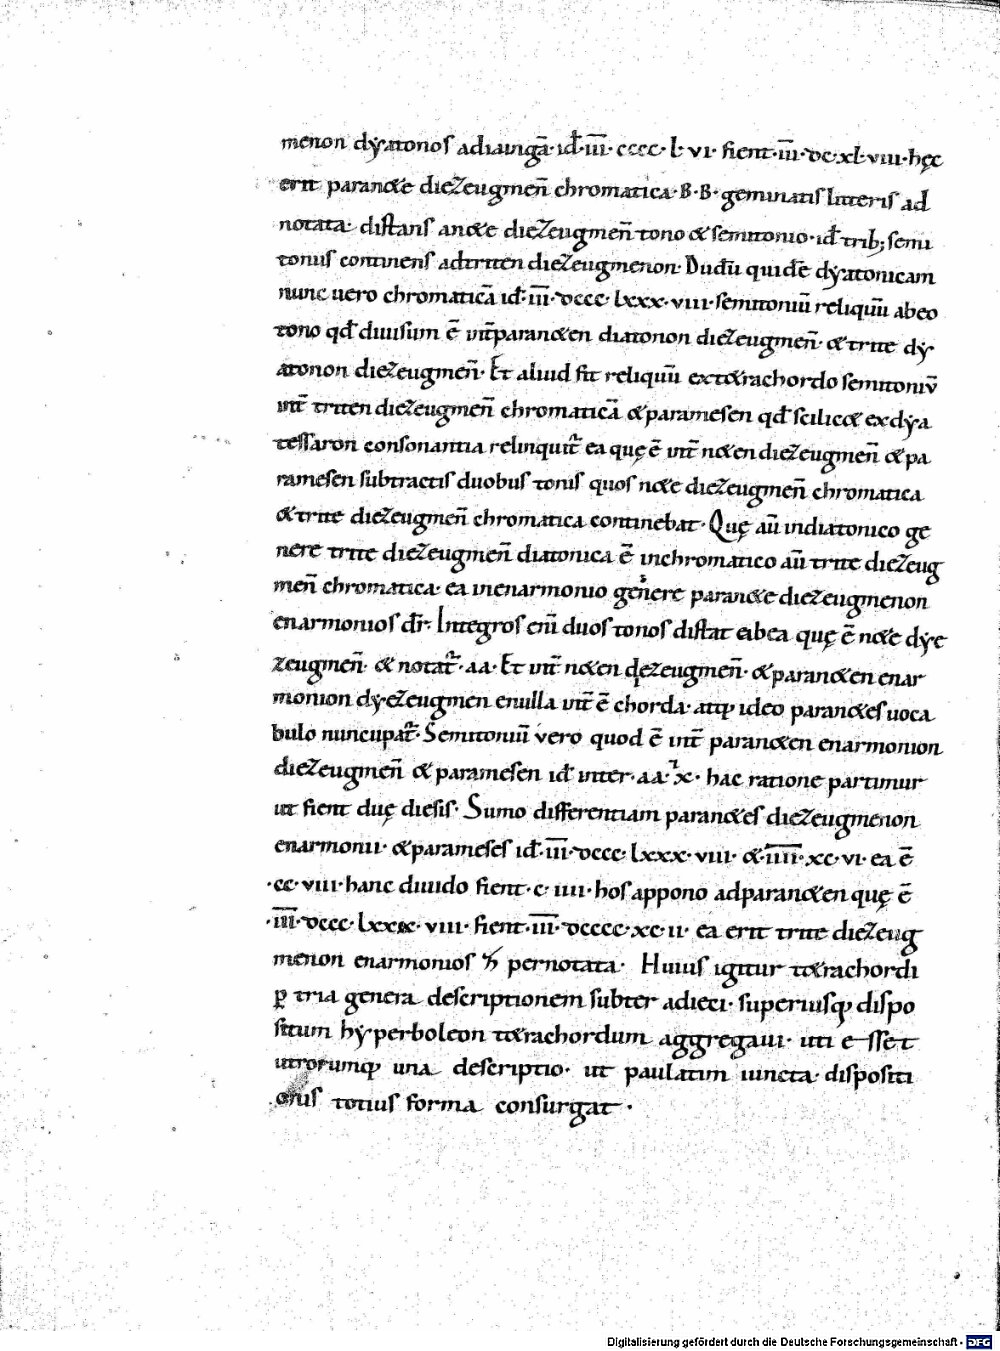 menon dẏatonos adiungā· id̄· īīī· cccc· l· vi· fient· īīī· dc· xl· viii· hęc
erit paran&e diezeugmeñ chromatica· B·B· geminatis litteris ad
notata· distans an&e diezeugmeñ tono & semitonio· id̄ trib; semi
tonus continens adtriten diezeugmenon· Dudū quidē dẏatonicam
nunc uero chromaticā id̄· īīī· dccc· lxxx· viii· semitoniū reliquū abeo
tono qd̄ diuisum ē int̄ paran&en diatonon diezeugmeñ· & trite dẏ
atonon diezeugmeñ· Et aliud fit reliquū ext&rachordo semitoniū
int̄ triten diezeugmeñ chromaticā & paramesen qd̄ scilic& exdẏa
tessaron consonantia relinquit̄ ea quę ē int̄ n&en diezeugmeñ & pa
ramesen subtractis duobus tonis quos n&e diezeugmeñ chromatica
& trite diezeugmeñ chromatica continebat· Quę aū indiatonico ge
nere trite diezeugmeñ diatonica ē inchromatico aū trite diezeug
meñ chromatica· ea inenarmonio genere paran&e diezeugmenon
enarmonios dr̄· Integros eni duos tonos distat eibea quę ē n&e dẏe
zeugmeñ· & notat̄· aa· Et int̄ n&en dęzeugmeñ· & paran&en enar
monion dẏezeugmen enulla int̄ ē chorda· atq; ideo paran&es uoca
bulo nuncupat̄· Semitoniū vero quod ē int̄ paran&en enarmonion
diezeugmeñ & paramesen id̄ inter· aa· & x· hac ratione partimur
ut fient duę diesis· Sumo differentiam paran&es diezeugmenon
enarmonii· & parameses id̄· īīī· dccc· lxxx· viii· & īīīī· xc· vi· ea ē
·cc· viii· hanc diuido fient· c· iiii· hos appono adparan&en quę ē
·īīī· dccc· lxxx· viii· fient· īīī· dcccc· xc· ii· ea erit trite diezeug
menon enarmonios pernotata· Huius igitur t&rachordi
ꝑ tria genera descriptionem subter adieci· superiusq; dispo
situm hẏperboleon t&rachordum aggregaui· uti esset
utrorumq; una descriptio· ut paulatim iuncta· dispositi
onis totius forma consurgat·
Digitalisierung gefördert durch die Deutsche Forschungsgemeinschaft - DFG